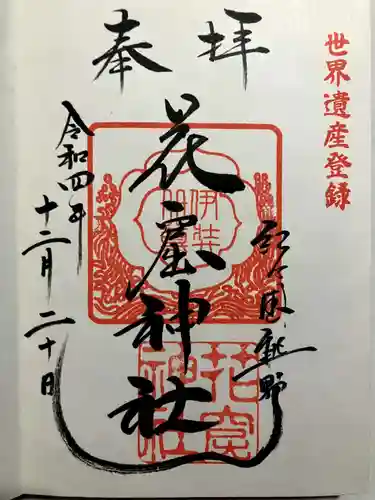 世界遺産登録
奉拝
花窟神社
令和四年
十二月二十日
伊弉冊尊
花窟神社